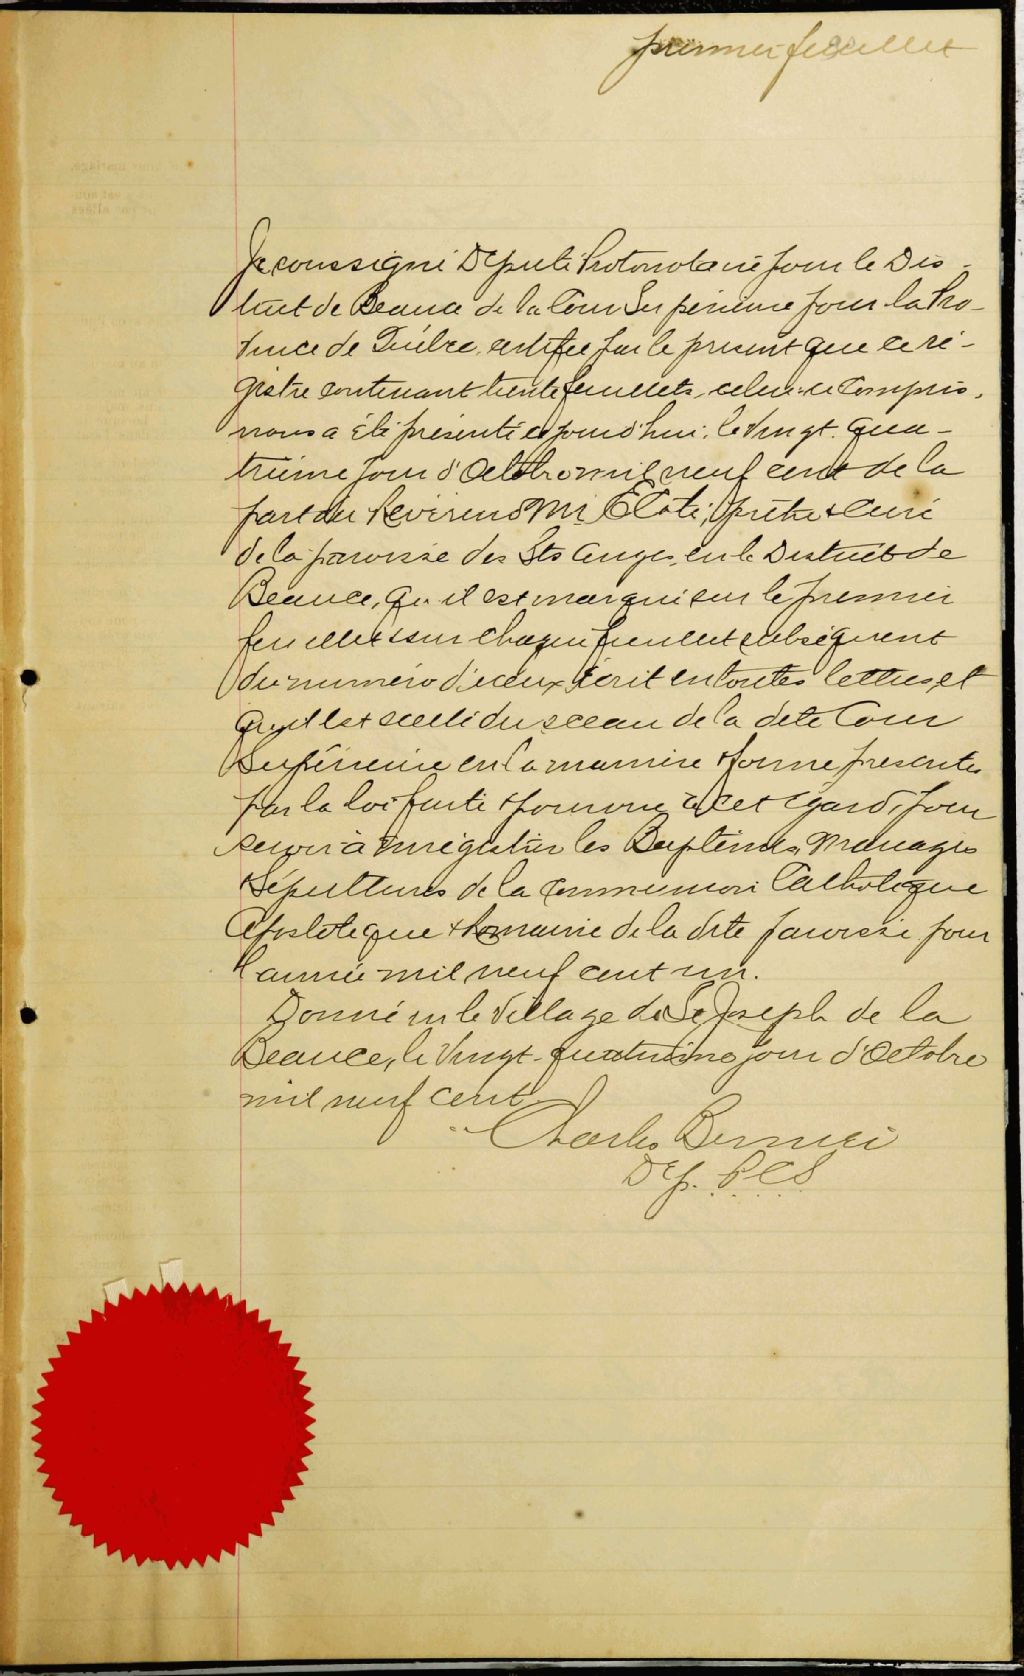 premier feuillet
Je soussigné Député Protonotaire pour le Dis-
trict de Beauce de la Cour Supérieure pour la Pro-
vince de Québec, certifie par le présent que ce ré-
gistre contenant trente feuillets, celui-ci compris,
nous a été présenté ce jourd'hui, le vingt-qua-
trième jour d'Octobre mil neuf cent de la
part du Révérend Mr Coté, prêtre & curé
de la paroisse des Sts Anges, en le District de
Beauce, qu'il est marqué sur le premier
feuillet & sur chaque feuillet subséquent
du numéro d'iceux écrit en toutes lettres, et
qu'il est scellé du sceau de la dite Cour
Supérieure en la manière & forme prescrites
par la loi faite & pourvue à cet égard, pour
servir à enrégistrer les Baptêmes, Mariages
& Sépultures de la Communion Catholique
Apostolique & Romaine de la dite paroisse pour
l'année mil neuf cent un.
Donné en le Village de St Joseph de la
Beauce, le vingt-quatrième jour d'Octobre
mil neuf cent.
Charles
Dep. P.C.S